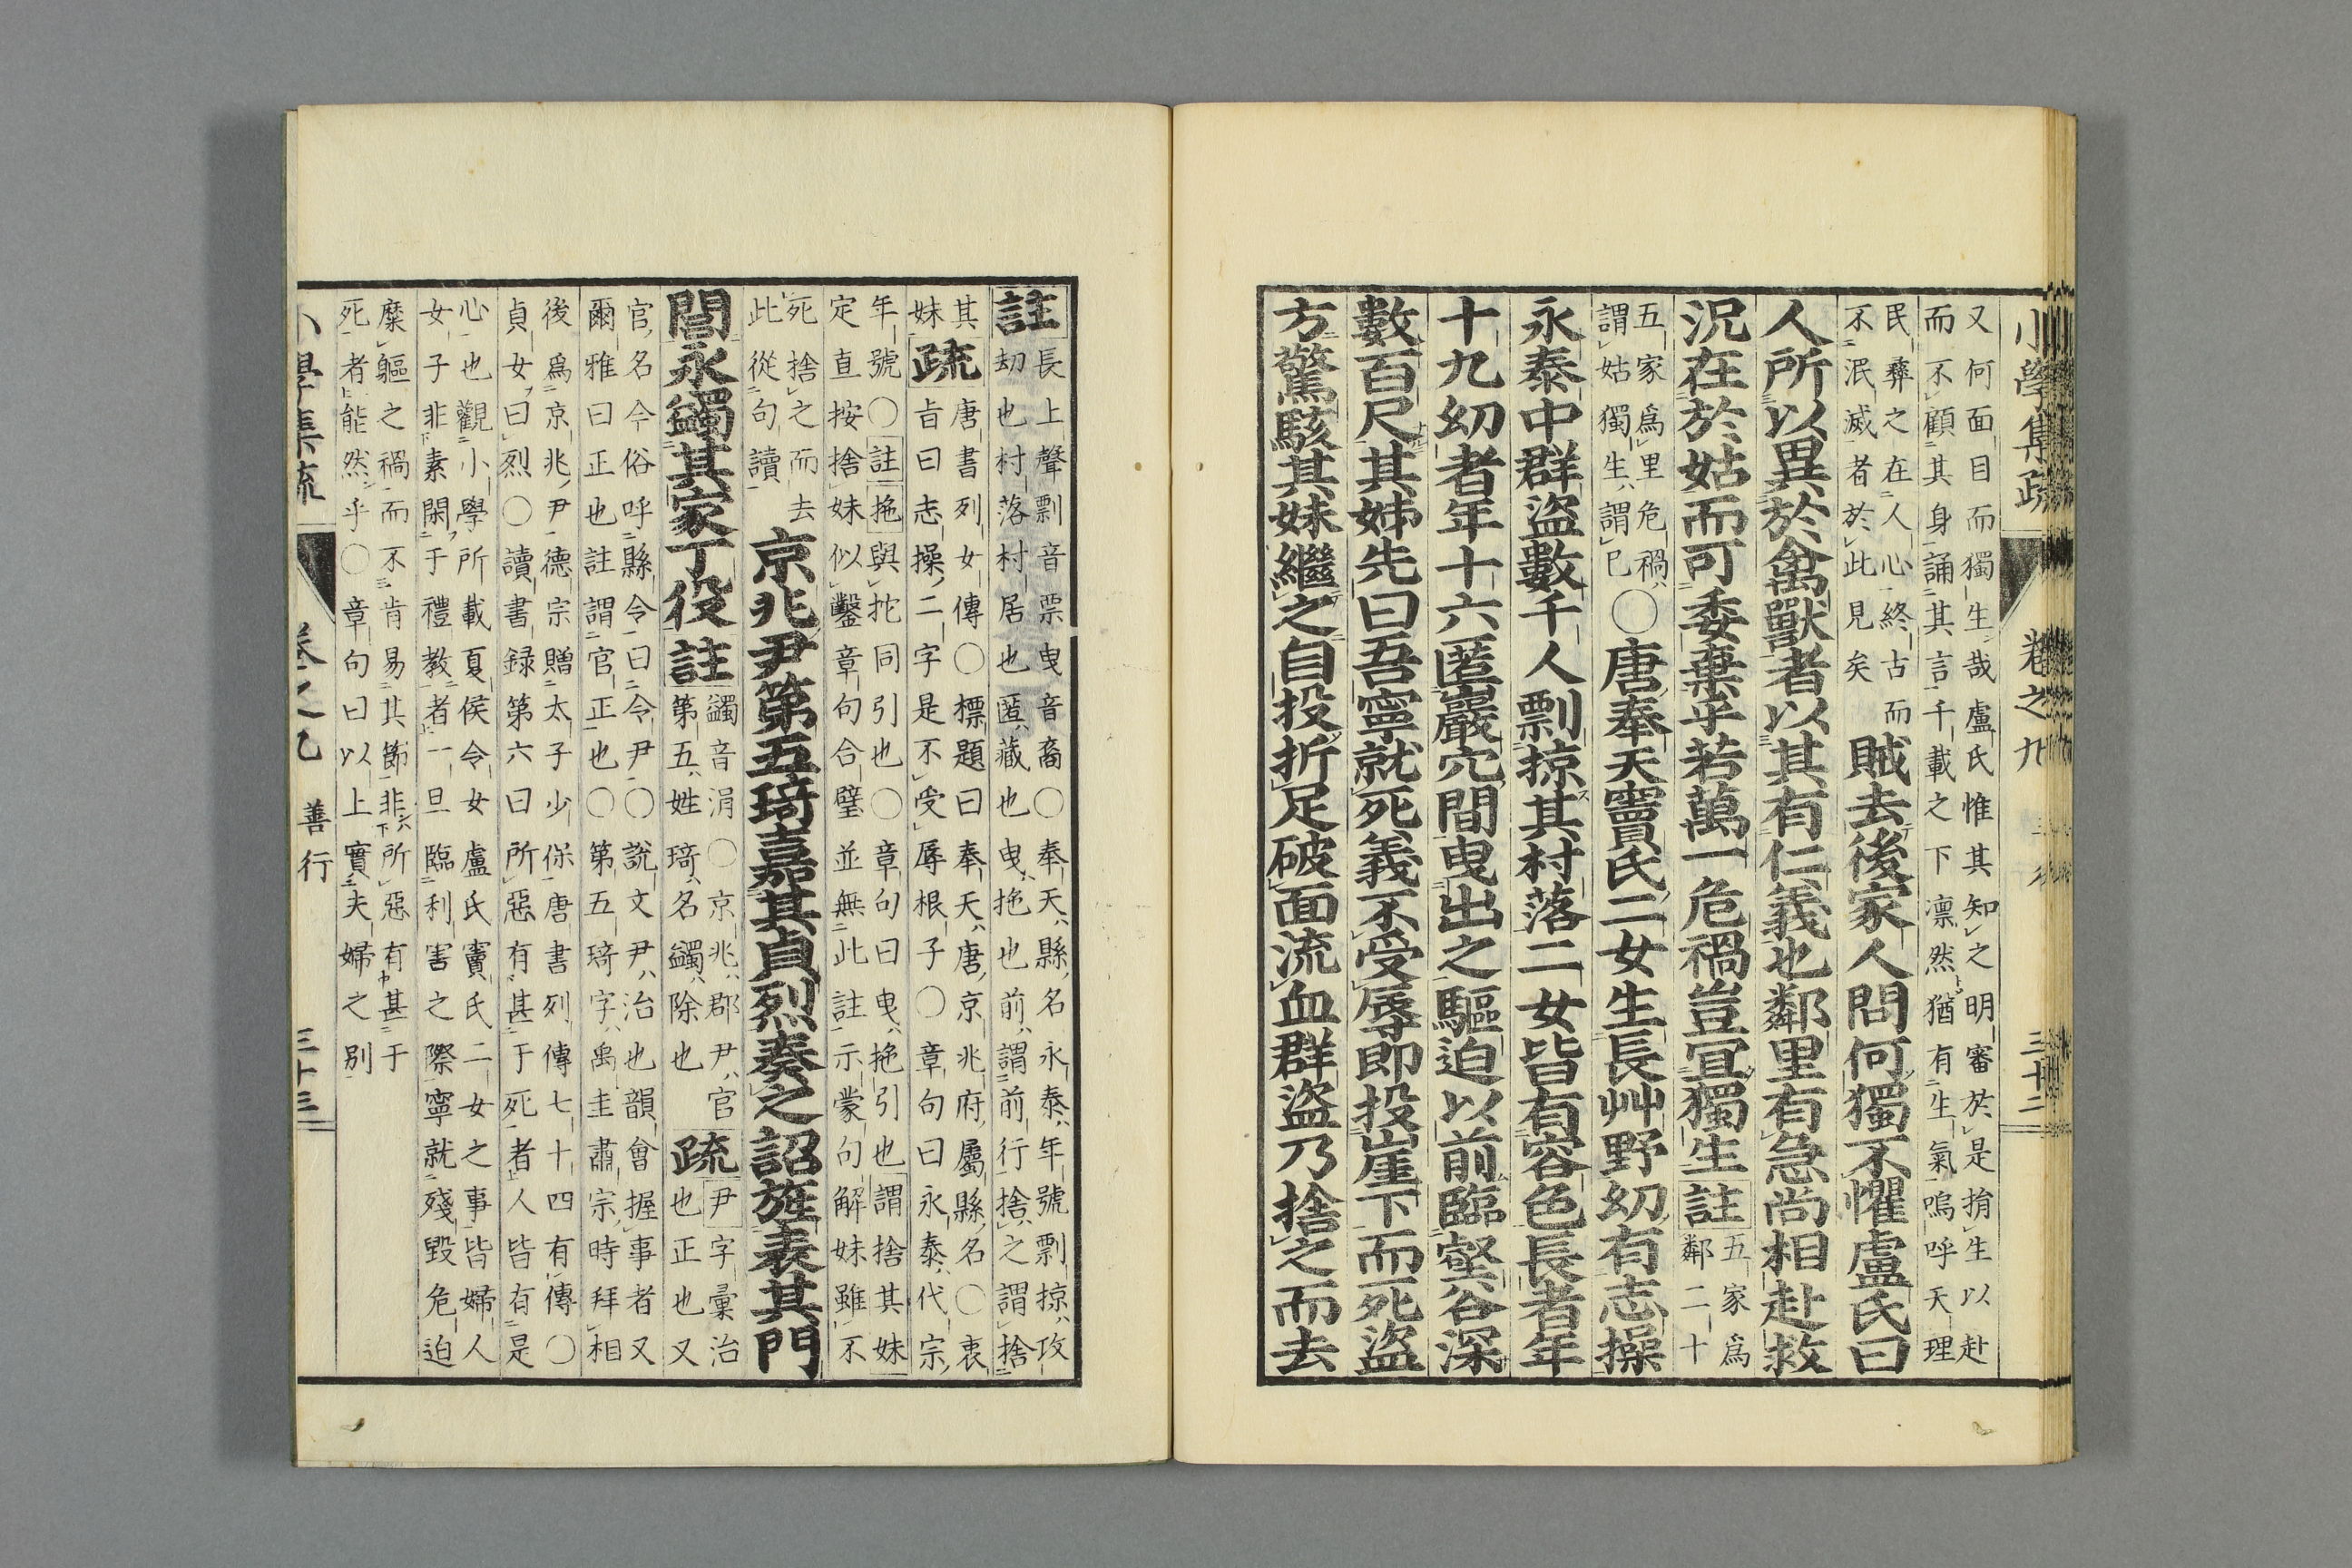 小學集疏 卷之九 三十二
又何面目而獨生哉盧氏惟其知之明審於是捐生以赴
而不顧其身誦其言千載之下凛然猶有生氣嗚呼天理
民彝之在人心終古而
不泯滅者於此見矣
賊去後家人問何獨不懼盧氏曰
人所以異於禽獸者以其有仁義也鄰里有急尚相赴救
況在於姑而可委棄乎若萬一危禍豈宜獨生註
五家爲
鄰二十
五家爲里危禍
謂姑獨生謂巳
〇唐奉天竇氏二女生長艸野幼有志操
永泰中群盜數千人剽掠其村落二女皆有容色長者年
十九幼者年十六匿巖穴間曳出之驅迫以前臨壑谷深
數百尺其姊先曰吾寧就死義不受辱即投崖下而死盜
方驚駭其妹繼之自投折足破面流血群盜乃捨之而去
註
長上聲剽音票曳音裔〇奉天縣名永泰年號剽掠攻
劫也村落村居也匿藏也曳拖也前謂前行捨之謂捨
其唐書列女傳〇標題曰奉天唐京兆府屬縣名〇衷
妹疏㫖曰志操二字是不受辱根子〇章句曰永泰代宗
年號〇註拖與拕同引也〇章句曰曳拖引也謂捨其妹
定直按捨妹似鑿章句合璧並無此註示蒙句解妹雖不
死捨之而去
此從句讀
京兆尹第五琦嘉其貞烈奏之詔旌表其門
閭永蠲其家丁役註
蠲音涓〇京兆郡尹官
第五姓琦名蠲除也
疏
尹字彙治
也正也又
官名今俗呼縣令曰令尹〇說文尹治也韻會握事者又
爾雅曰正也註謂官正也〇第五琦字禹圭肅宗時拜相
後爲京兆尹德宗贈太子少保唐書列傳七十四有傳〇
貞女曰烈〇讀書録第六曰所惡有甚于死者人皆有是
心也觀小學所載夏侯令女盧氏竇氏二女之事皆婦人
女子非素閑于禮教者一旦臨利害之際寧就殘毀危迫
糜軀之禍而不肯易其節非所惡有甚于
死者能然乎〇章句曰以上實夫婦之別
小學集疏 卷之九 善行 三十三